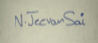 N. JeevanSai